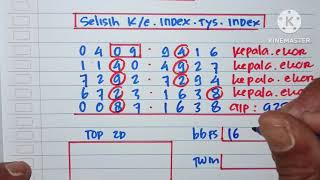 Selisih K/E. INDEX. TYS. INDEX
KINEMASTER
0 4 0 9 . 9 4 1 6 Kepala. EKOR
1 1 4 0 . 4 9 2 7 Kepala. EKOR
7 2 9 2 . 7 2 9 4 Kepala. EKOR
6 7 2 3 . 1 6 3 8 Kepala. EKOR
0 0 8 7 . 1 6 3 8
TOP 2D
bbFS 16
TWIN